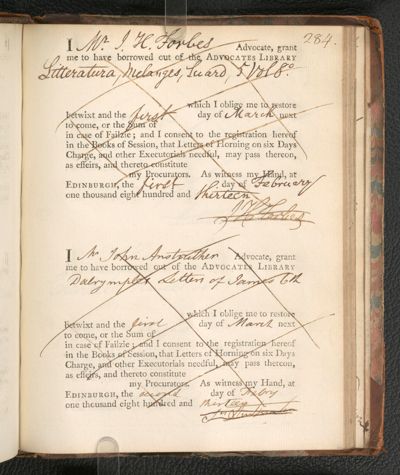 284.
I Mr. J. H. Forbes Advocate, grant
me to have borrowed out of the ADVOCATES LIBRARY
Litteratura, Melanges, Suard 5 Vol 8o
which I oblige me to restore
betwixt and the first day of March next
to come, or the Sum of
in case of Failzie; and I consent to the registration hereof
in the Books of Session, that Letters of Horning on six Days
Charge, and other Executorials needful, may pass thereon,
as effeirs, and thereto constitute
my Procurators. As witness my Hand, at
EDINBURGH, the first day of February
one thousand eight hundred and thirteen
J H Forbes
I Mr. John Anstruther Advocate, grant
me to have borrowed out of the ADVOCATES LIBRARY
Dalrymples Letters of James 6th
which I oblige me to restore
betwixt and the first day of March next
to come, or the Sum of
in case of Failzie; and I consent to the registration hereof
in the Books of Session, that Letters of Horning on six Days
Charge, and other Executorials needful, may pass thereon,
as effeirs, and thereto constitute
my Procurators. As witness my Hand, at
EDINBURGH, the second day of Febry
one thousand eight hundred and thirteen
Jn Anstruther